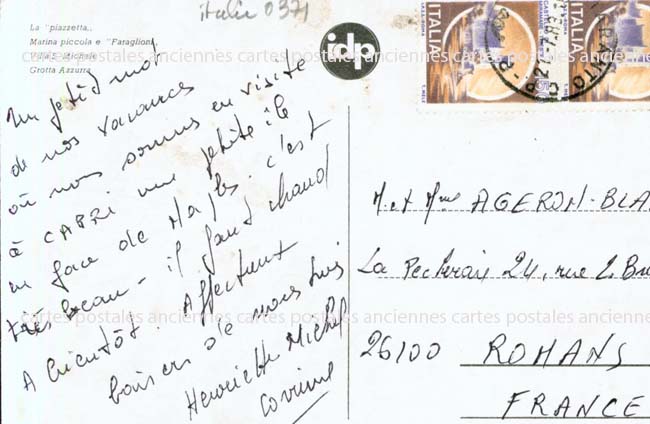 italie 0371
La "piazzetta,,
Marina piccola e "Faraglioni
Villa S. Michele
Grotta Azzurra
idp
ITALIA
ITALIA
cartes postales anciennes cartes postales anciennes cartes postales anciennes
Un petit mot
de nos vacances
où nous sommes en visite
à CAPRI une petite île
en face de Naples. c'est
très beau - il fait chaud
A bientôt. Affectueux
baisers de nous trois
Henriette Michel
Corinne
M. et Mme AGERON-BLA
La Pecherais 24, rue
26100 ROMANS
FRANCE
cartes postales anciennes cartes postales anciennes cartes postales anciennes